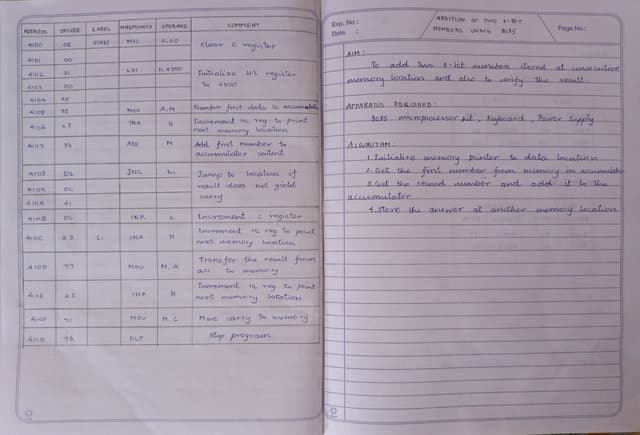 ADDRESS OPCODE LABEL MNEMONICS OPERAND COMMENT
4100 0E START MVI C,00 Clear C register
4101 00
4102 21 LXI H,4500 Initialize HL register
4103 00 To 4500
4104 45
4105 7E MOV A,M Transfer first data to accumulator
4106 23 INX H Increment HL reg to print
next memory location
4107 86 ADD M Add first number to
accumulator content
4108 D2 JNC L1 Jump to location if
4109 0C result does not yield
410A 41 carry
410B 0C INR C Increment C register
410C 23 L1 INX H Increment HL reg to print
next memory location
410D 77 MOV M,A Transfer the result from
acc to memory
410E 23 INX H Increment HL reg to print
next memory location
410F 71 MOV M,C Move carry to memory
4110 76 HLT Stop program
Exp. No :
Date :
ADDITION OF TWO 8-BIT
NUMBERS USING 8085
Page No.:
AIM:
To add two 8-bit numbers stored at consecutive
memory location and also to verify the result.
APPARATUS REQUIRED:
8085 microprocessor kit, keyboard, Power Supply
ALGORITHM:
1. Initialize memory pointer to data location
2. Get the first number from memory in accumulator
3. Get the second number and add it to the
accumulator
4. Store the answer at another memory location